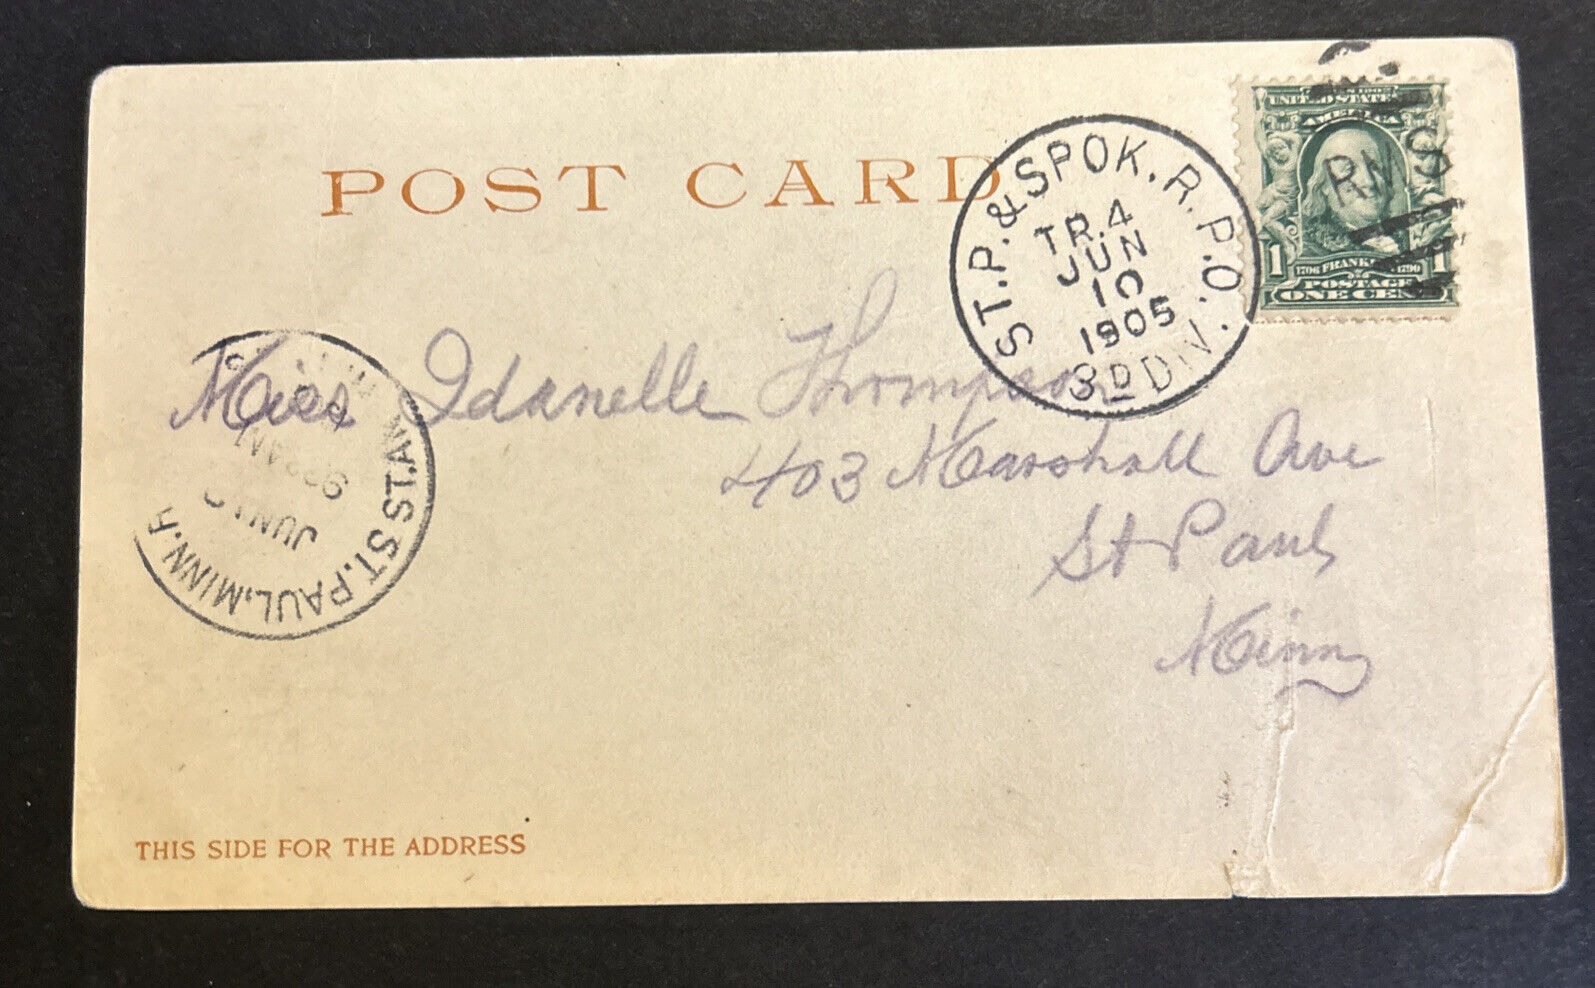 POST CARD
ST.P. & SPOK. R.P.O.
TR.4
JUN
10
1905
3D DIV.
UNITED STATES
AMERICA
RMS
1 1706 FRANKLIN 1790 1
POSTAGE
ONE CENT
Miss Idanelle Thompson
403 Marshall Ave
St Paul
Minn
ST. PAUL, MINN.
ST.ANN
JUN
9
AM
THIS SIDE FOR THE ADDRESS